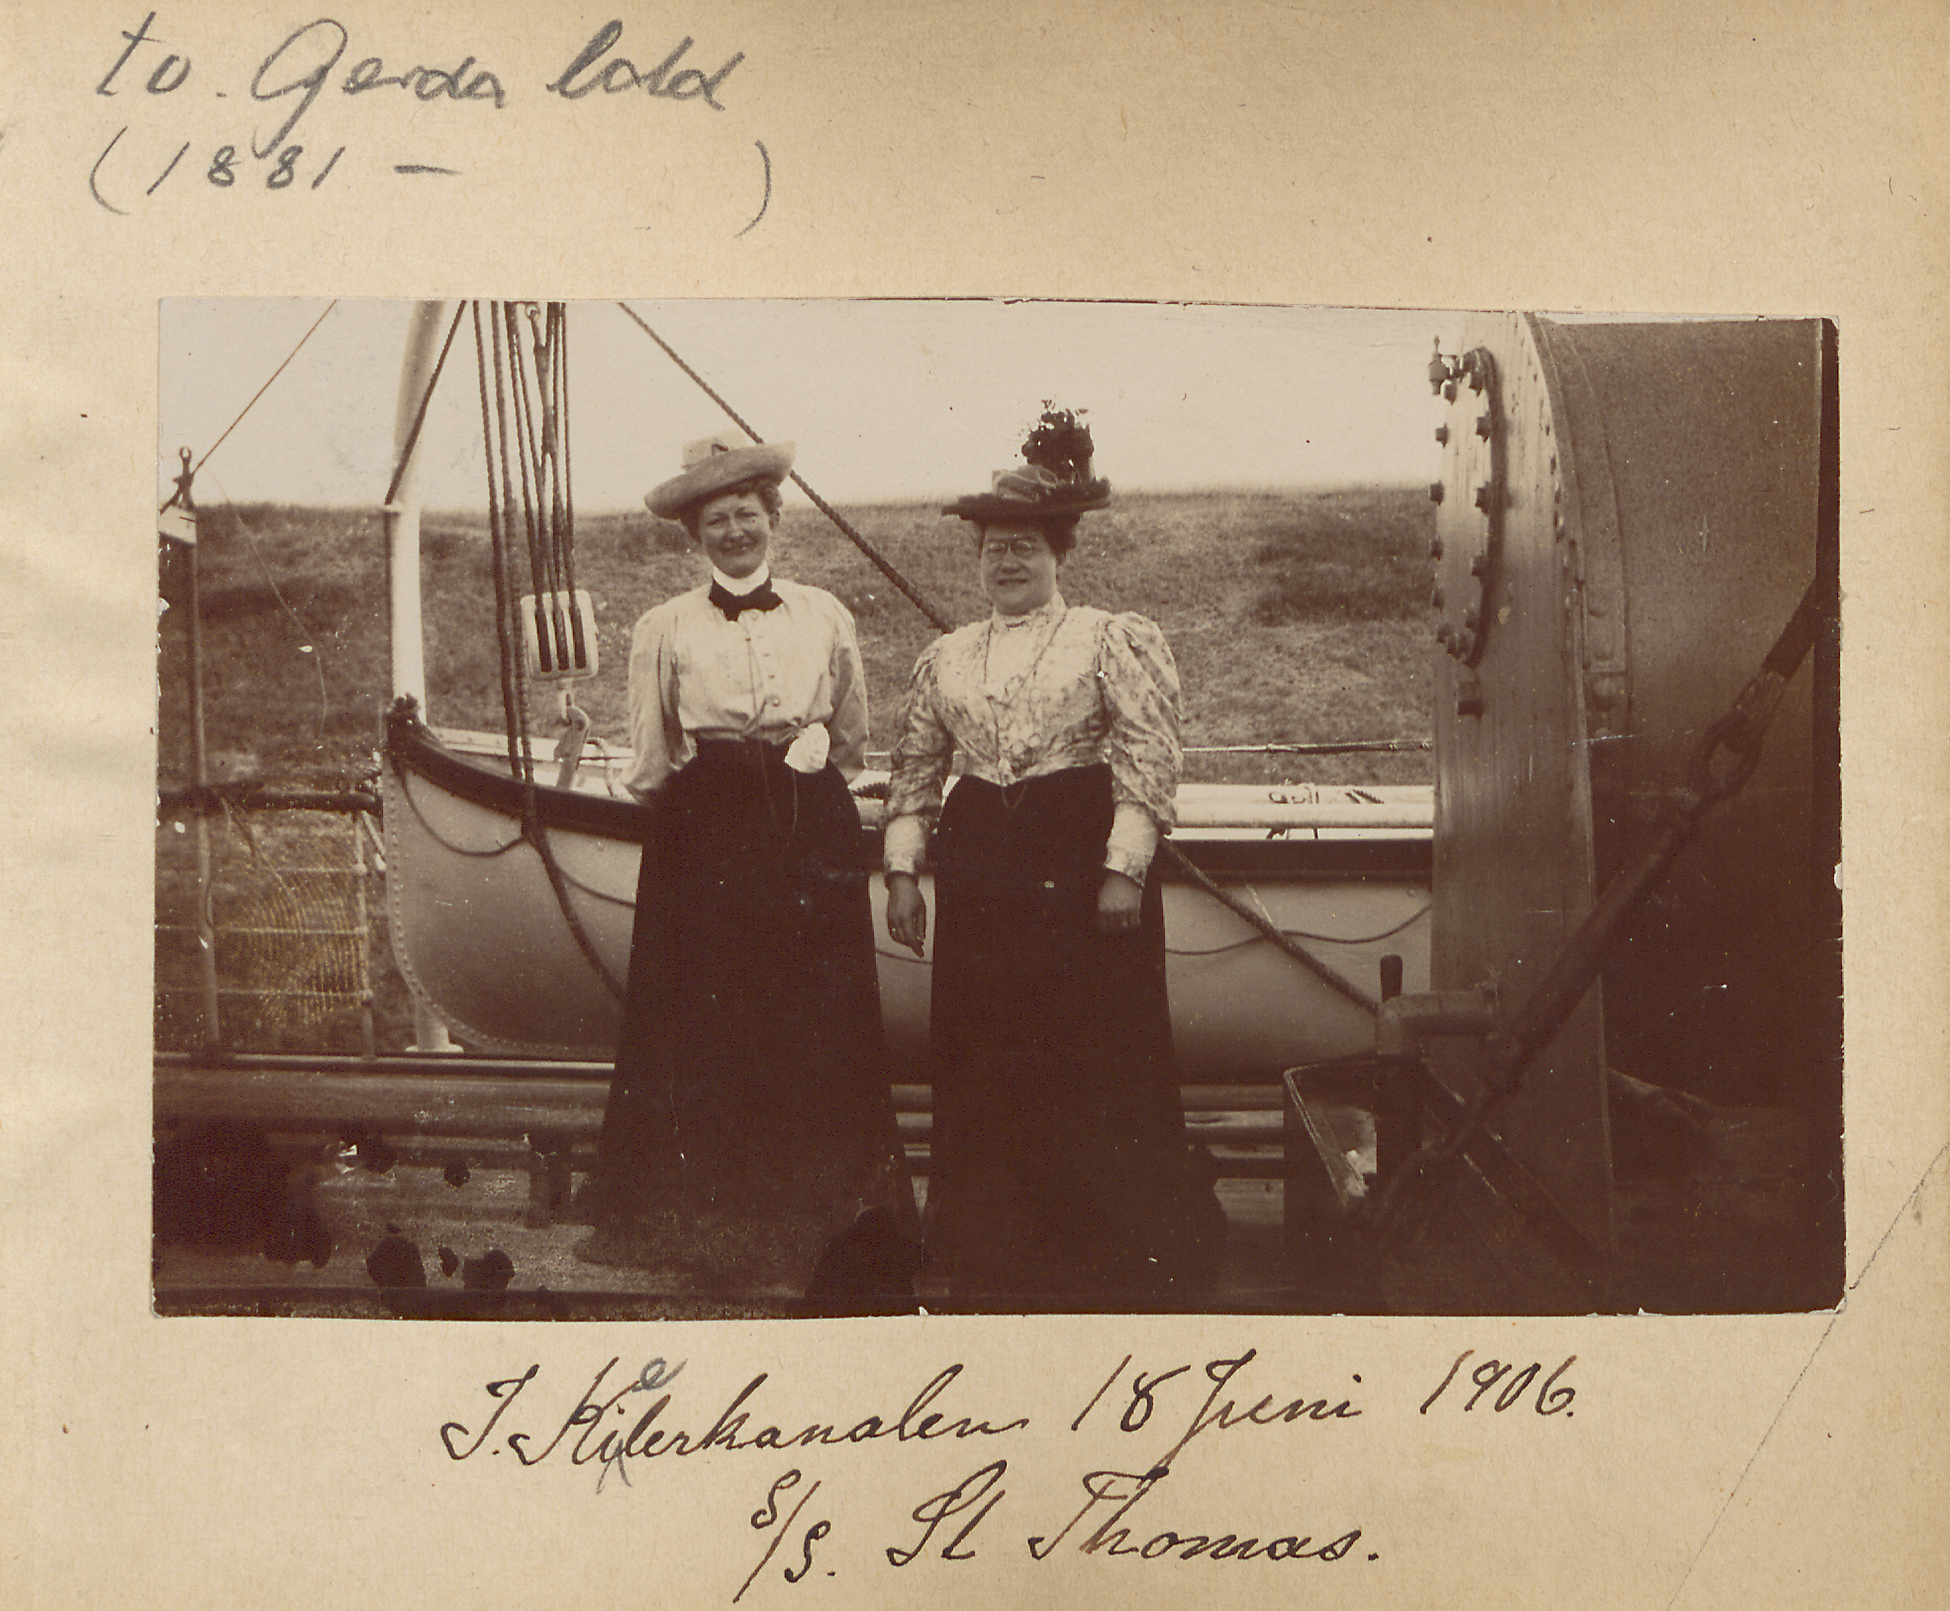 tv. Gerda Cold
(1881 – )
I. Kielerkanalen 18 Juni 1906.
S/S. St Thomas.